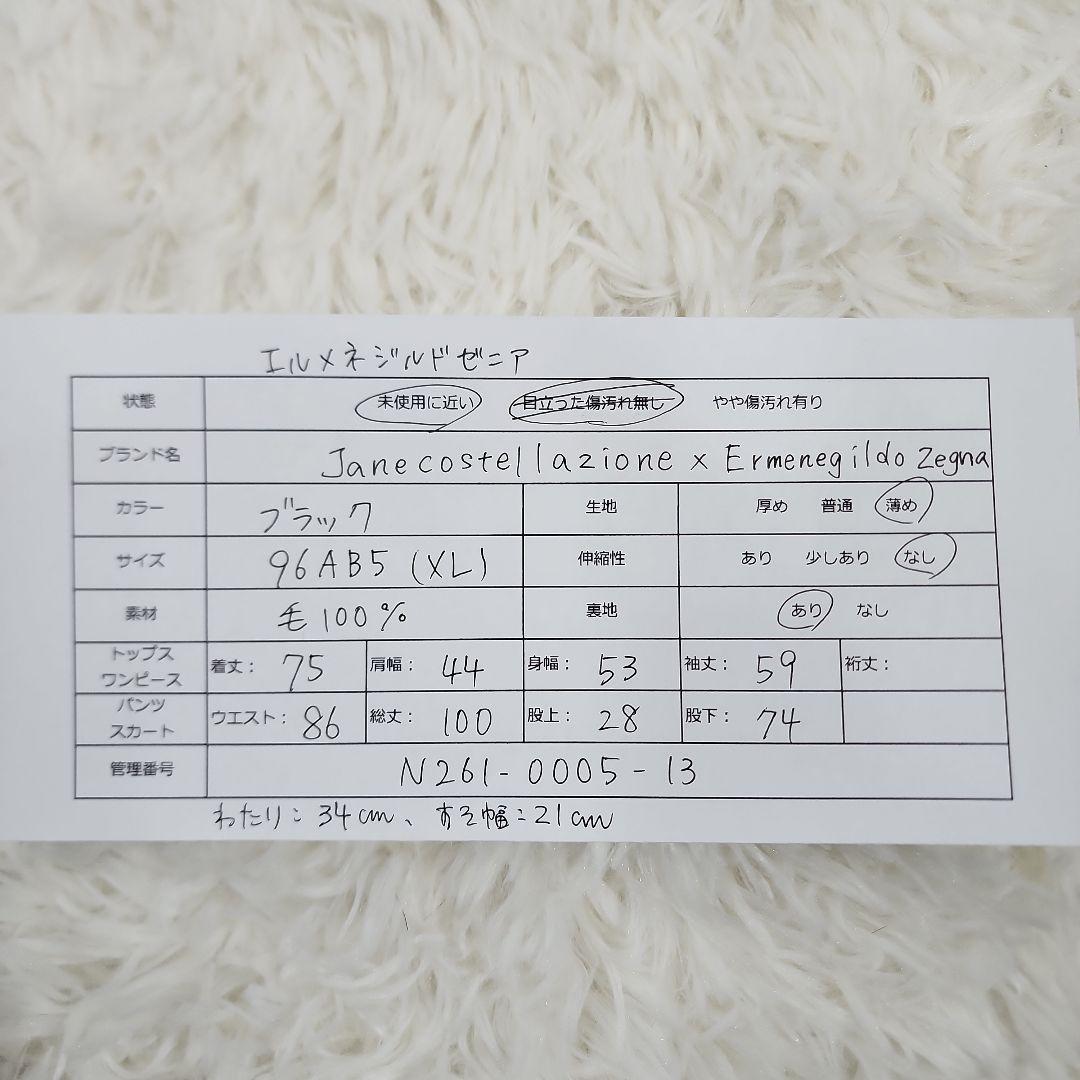 エルメネジルドゼニア
状態 未使用に近い 目立った傷汚れ無し やや傷汚れ有り
ブランド名 Janecostellazione x Ermenegildo Zegna
カラー ブラック 生地 厚め 普通 薄め
サイズ 96AB5 (XL) 伸縮性 あり 少しあり なし
素材 毛100% 裏地 あり なし
トップス
ワンピース 着丈: 75 肩幅: 44 身幅: 53 袖丈: 59 裄丈:
パンツ
スカート ウエスト: 86 総丈: 100 股上: 28 股下: 74
管理番号 N261-0005-13
わたり:34cm、すそ幅:21cm